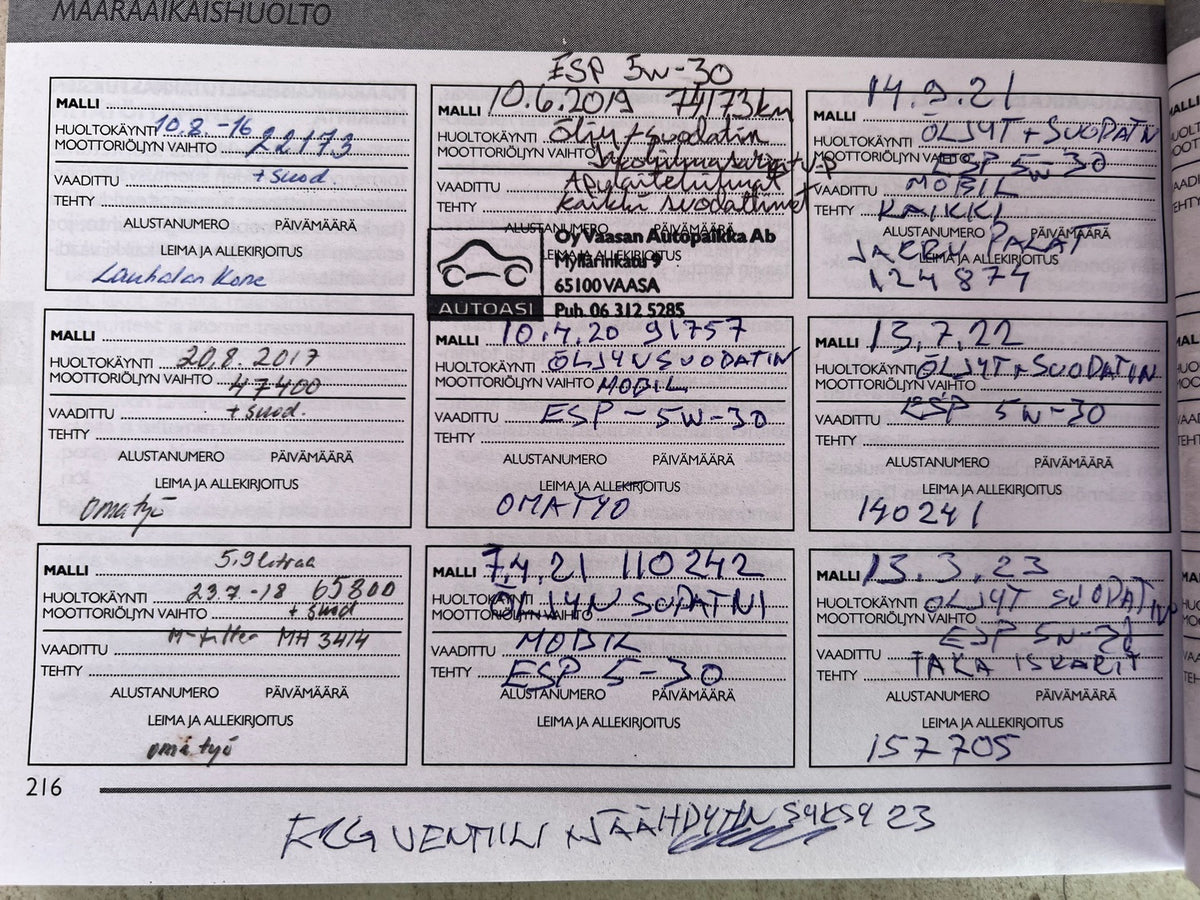 MÄÄRÄAIKAISHUOLTO
MALLI
HUOLTOKÄYNTI 10.8.-16
MOOTTORIÖLJYN VAIHTO 22173
VAADITTU + suod.
TEHTY
ALUSTANUMERO PÄIVÄMÄÄRÄ
LEIMA JA ALLEKIRJOITUS
Lauhalan Kone
MALLI
HUOLTOKÄYNTI 20.8.2017
MOOTTORIÖLJYN VAIHTO 47400
VAADITTU + suod.
TEHTY
ALUSTANUMERO PÄIVÄMÄÄRÄ
LEIMA JA ALLEKIRJOITUS
oma työ
5.9 litraa
MALLI
HUOLTOKÄYNTI 23.7.-18 65800
MOOTTORIÖLJYN VAIHTO + suod
MH 3414
VAADITTU
TEHTY
ALUSTANUMERO PÄIVÄMÄÄRÄ
LEIMA JA ALLEKIRJOITUS
oma työ
ESP 5W-30
MALLI 10.6.2019 74173km
HUOLTOKÄYNTI Öljy + suodatin
MOOTTORIÖLJYN VAIHTO
VAADITTU Apulaitehihnat
TEHTY kaikki suodattimet
ALUSTANUMERO PÄIVÄMÄÄRÄ
LEIMA JA ALLEKIRJOITUS
AUTOASI
Oy Vaasan Autopaikka Ab
Myllärinkatu 9
65100 VAASA
Puh. 06 312 5285
MALLI 10.4.20 91757
HUOLTOKÄYNTI ÖLJYNSUODATIN
MOOTTORIÖLJYN VAIHTO MOBIL
VAADITTU ESP - 5W-30
TEHTY
ALUSTANUMERO PÄIVÄMÄÄRÄ
LEIMA JA ALLEKIRJOITUS
OMATYÖ
MALLI 7.4.21 110242
HUOLTOKÄYNTI ÖLJYN SUDATNI
MOOTTORIÖLJYN VAIHTO
VAADITTU MOBIL
TEHTY ESP 5-30
ALUSTANUMERO PÄIVÄMÄÄRÄ
LEIMA JA ALLEKIRJOITUS
14.9.21
MALLI
HUOLTOKÄYNTI ÖLJYT + SUODATN
MOOTTORIÖLJYN VAIHTO ESP 5W-30
VAADITTU MOBIL
TEHTY KAIKKI
ALUSTANUMERO PÄIVÄMÄÄRÄ
JARRU PALAT
LEIMA JA ALLEKIRJOITUS
124874
MALLI 13.7.22
HUOLTOKÄYNTI ÖLJYT + SUODATIN
MOOTTORIÖLJYN VAIHTO
VAADITTU ESP 5W-30
TEHTY
ALUSTANUMERO PÄIVÄMÄÄRÄ
LEIMA JA ALLEKIRJOITUS
140241
MALLI 13.3.23
HUOLTOKÄYNTI ÖLJYT SUODATIN
MOOTTORIÖLJYN VAIHTO ESP 5W-30
VAADITTU TAKA ISKARIT
TEHTY
ALUSTANUMERO PÄIVÄMÄÄRÄ
LEIMA JA ALLEKIRJOITUS
157705
216
VENTIILI SYKSY 23